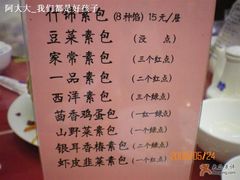 阿大大_我们都是好孩子
什锦素包 (8种馅) 15元/屉
豆菜素包 (没 点)
家常素包 (三个红点)
一品素包 (二个红点)
西洋素包 (三个绿点)
茴香鸡蛋包 (一红一绿点)
山野菜素包 (一个绿点)
银耳香椿素包 (二个绿点)
虾皮韭菜素包 (一个红点)
2008/05/24